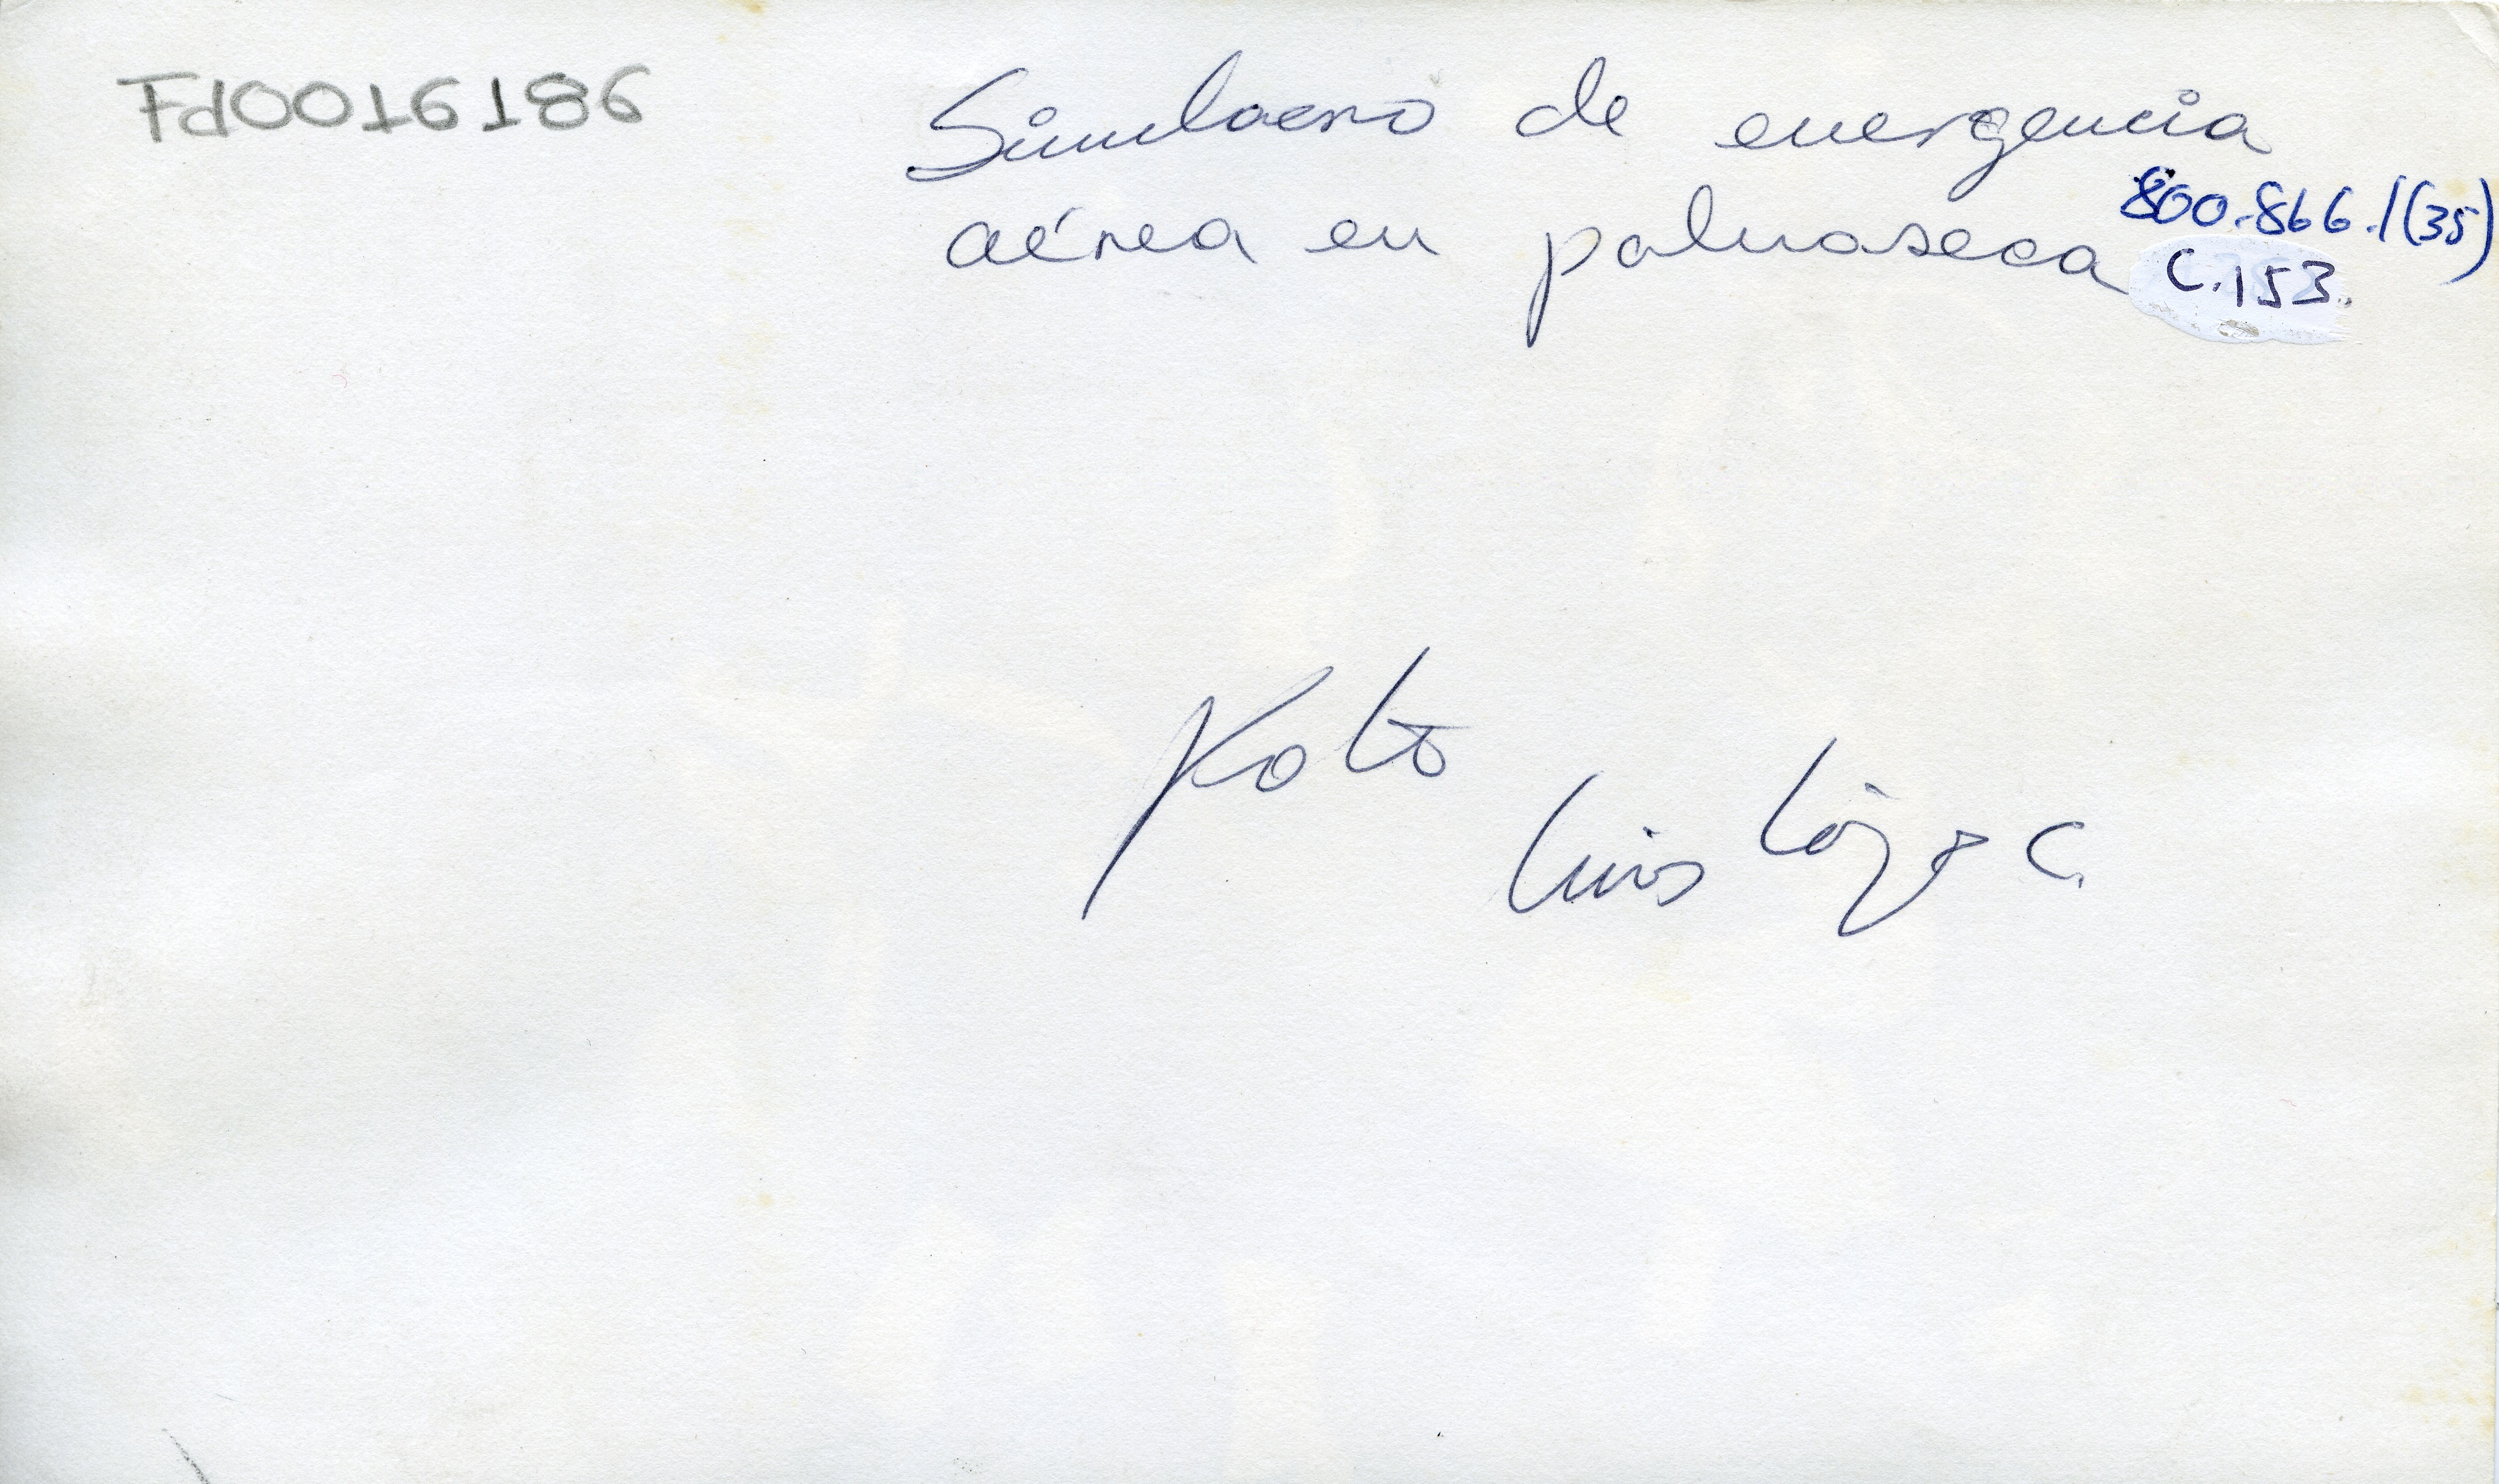 Fd0016186
Simulacro de emergencia
800.866.1(35)
aérea en palmaseca
C.153.
Foto
Luis López C.